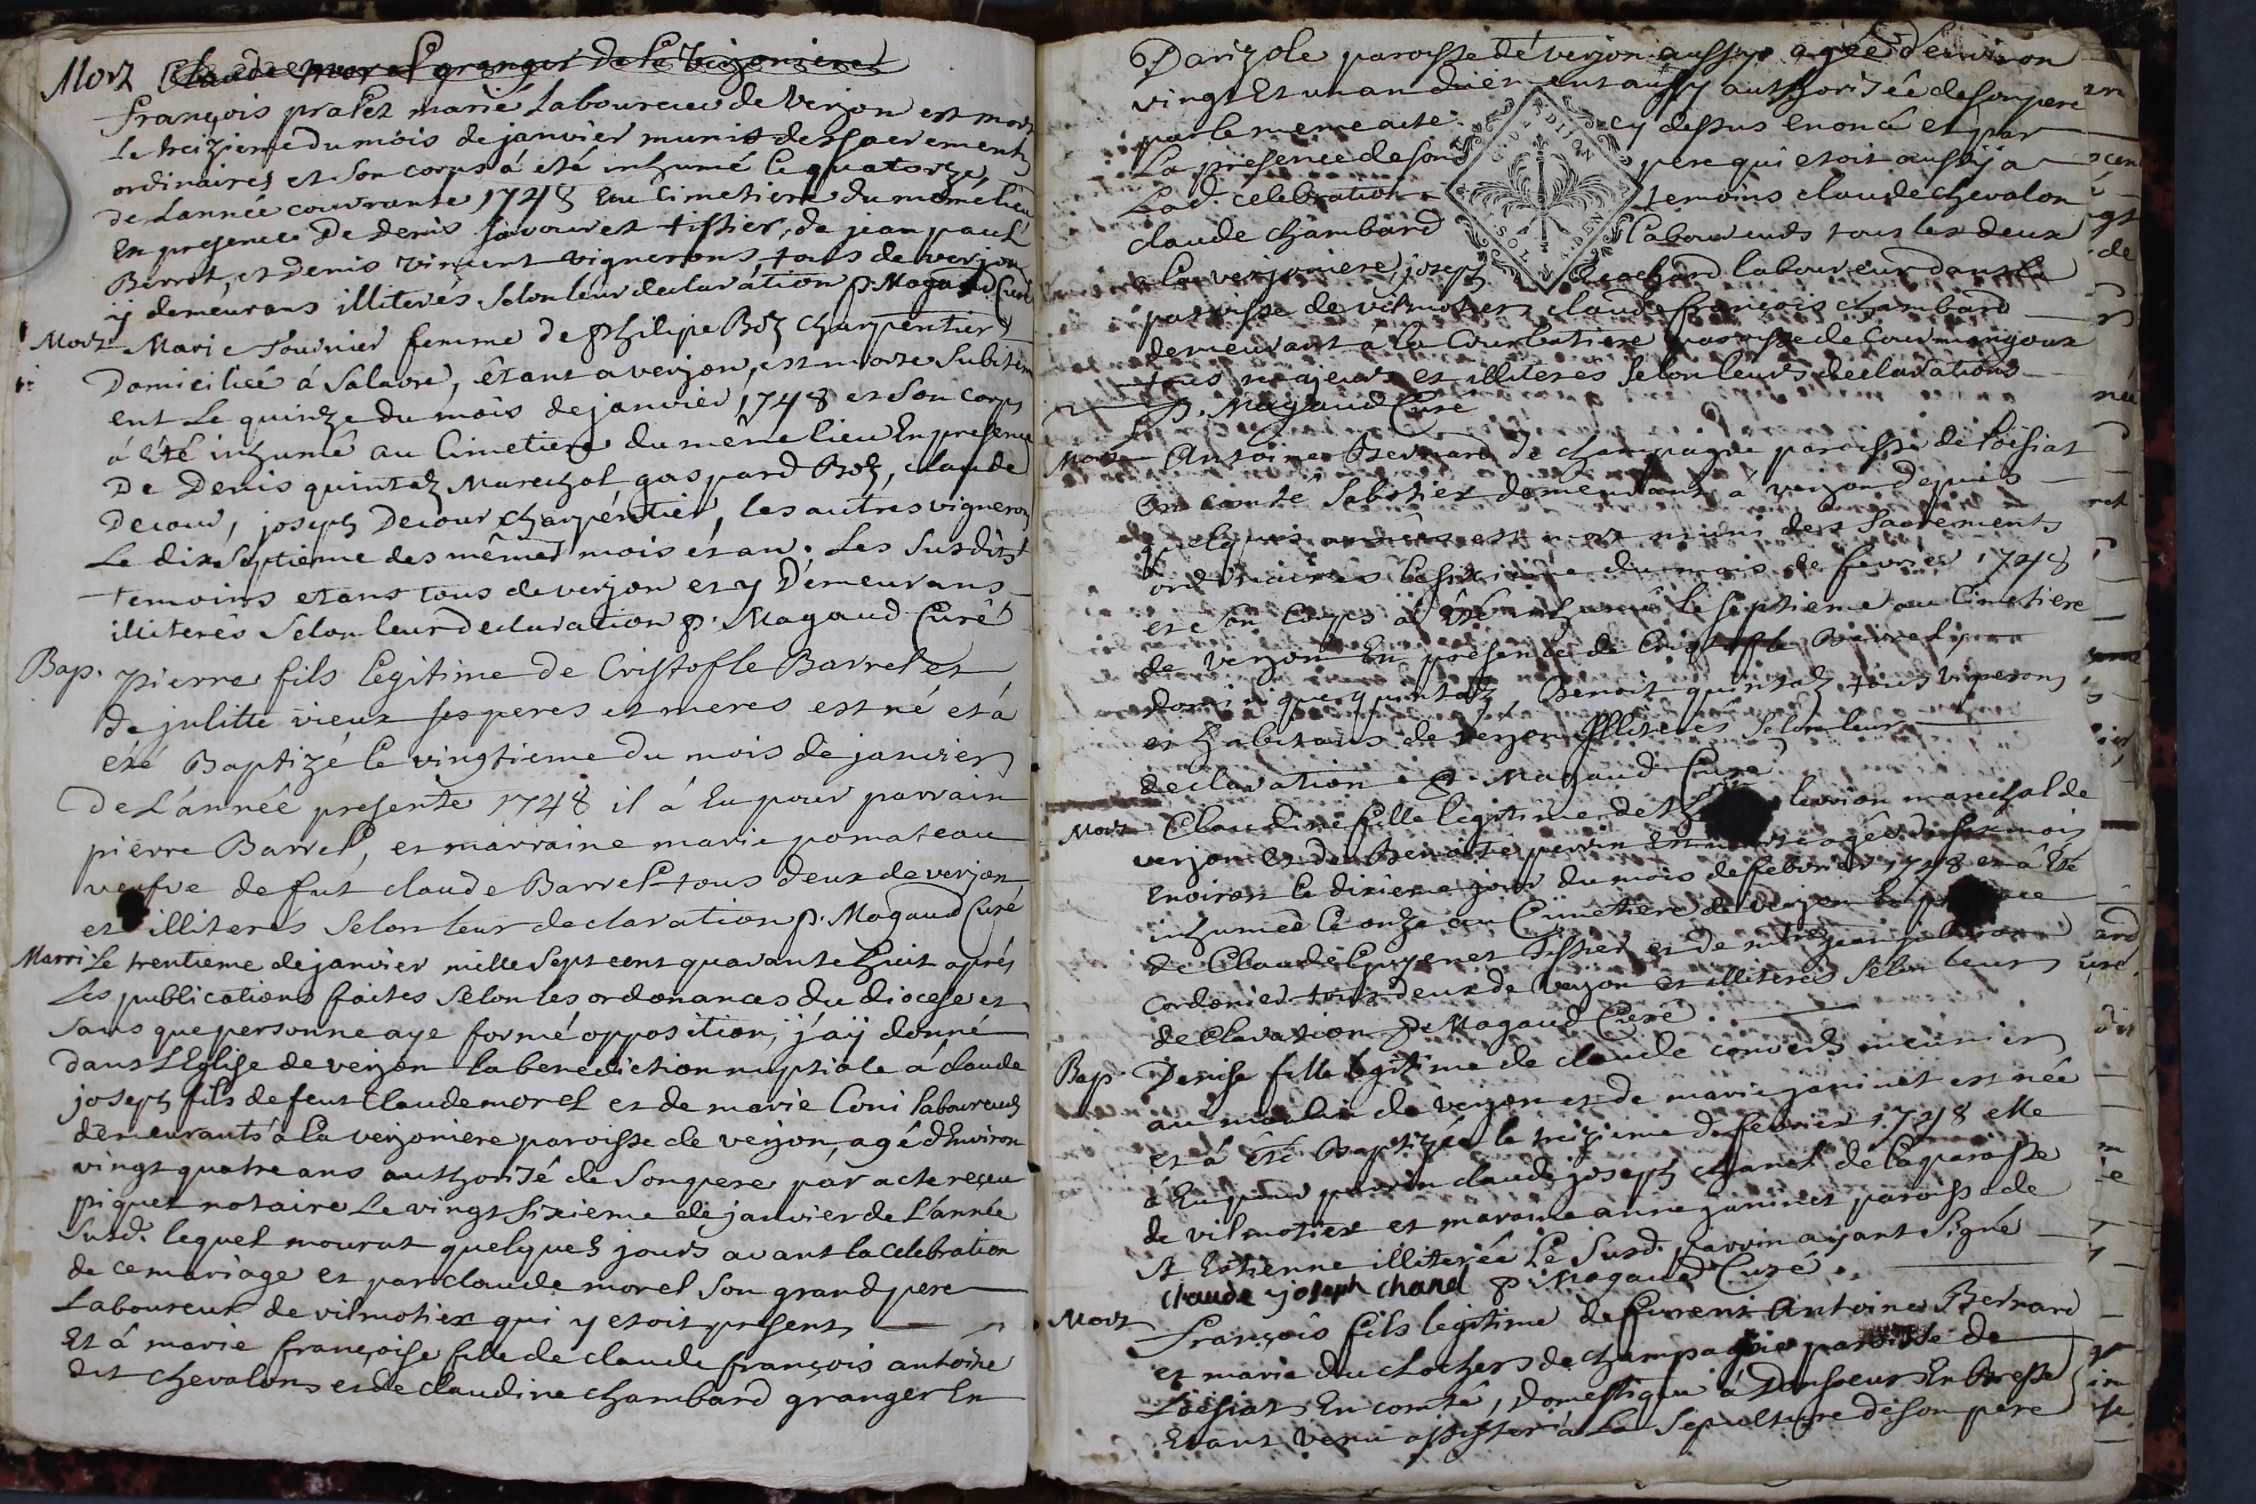 Mort Claude morel granger de la Verjoniere
françois pralet marié Laboureur de Verjon est mort
Le treizieme du mois de janvier munit des sacrements
ordinaires et son corps á eté inhumé le quatorze
de L'année courrante 1748 au Cimetiere du même lieu
En presence De denis favouret tissier, de jean paul
Berret, et Denis vincent vignerons tous de verjon
ij demeurans illiterés selon leur declaration p. Magaud Curé
Mort Marie fournier femme de philipe Boz charpentier
Domiciliée á Salavre, étant a verjon, est morte Subitem
ent Le quinze du mois de janvier 1748 et son corps
á eté inhumé au Cimetiere du même lieu En presence
De Denis quintaz Marechal, gaspard Boz, claude
Decour, joseph Decour charpentier, les autres vignerons
Le dix septieme des mêmes mois et an. Les susdits
temoins etans tous de verjon et y Demeurans
illiterés selon leur declaration p. Magaud Curé
Bap. pierre fils legitime de Cristofle Barrel et
de julitte vieux ses peres et meres est né et á
eté Baptizé le vingtieme du mois de janvier
de L'année presente 1748 il á Eu pour parrain
pierre Barrel, et marraine marie pomateau
veufve de fut claude Barrel tous deux de verjon
et illiterés selon leur declaration p. Magaud Curé
Marri. Le trentieme de janvier mille sept cent quarante huit aprés
Les publications faites selon les ordonances du diocese et
sans que personne aye formé opposition, j'aÿ donné
dans L'Eglise de verjon la benediction nuptiale á claude
joseph fils de feut Claude morel et de marie Coni laboureurs
demeurants á la verjoniere paroisse de verjon, agé d'Environ
vingt quatre ans authorisé de son pere par acte reçeu
piquet notaire Le vingt sixieme de janvier de L'année
susd. lequel mourut quelques jours avant la celebration
de ce mariage et par claude morel son grand pere
Laboureur de vilmotier qui y etoit present
Et á marie françoise fille de claude françois antoine
dit chevalon et de claudine chambard granger En
Darizole paroisse de verjon aussy agée d'environ
vingt Et un an duement aussy authorisée de son pere
par le meme acte cy dessus enoncé et par
La presence de son pere qui etoit aussy a
Lad. celebration temoins claude chevalon
claude chambard laboureurs tous les deux
a la verjoniere, joseph laboureur dans la
paroisse de vilmotier claude françois chambard
demeurant á la Courbatiere paroisse de Courmangoux
tous majeurs et illiterés selon leurs declarations
p. Magaud Curé
Mort Antoine Bernard de champagne paroisse de Loisiat
En comté Sabotier demeurant á verjon depuis
quelques années est mort muni des sacrements
ordinaires le sixieme du mois de fevrier 1748
et son corps á été inhumé le septieme au Cimetiere
de verjon En presence de Cristofle Barrel,
dominique quintaz, Benoit quintaz tous vignerons
et habitans de verjon illiterés selon leur
declaration p. Magaud Curé
Mort Claudine fille legitime de levrion marechal de
verjon et de Benoite perrin est morte agée de six mois
Environ le dixieme jour du mois de febvrier 1748 et á été
inhumée le onze au Cimetiere de verjon En presence
de Claude Guyenet Tissier et de
Cordonier tous deux de verjon et illiterés selon leur
declaration p. Magaud Curé
Bap. Denise fille legitime de claude convers meunier
au moulin de verjon et de marie janinet est née
et á été Baptizée le treizieme de fevrier 1748 elle
á Eu pour parrin claude joseph chanel de la paroisse
de vilmotier et maraine anne janinet paroisse de
st Estienne illiterée Le susd. parrin aÿant signé
claude joseph chanel p. Magaud Curé.
Mort françois fils legitime de furent Antoine Bernard
et marie du clochers de champagne paroisse de
Loisiat En comté, Domestique á Domseur En Bresse
Etant venu assister á La sepulture de son pere